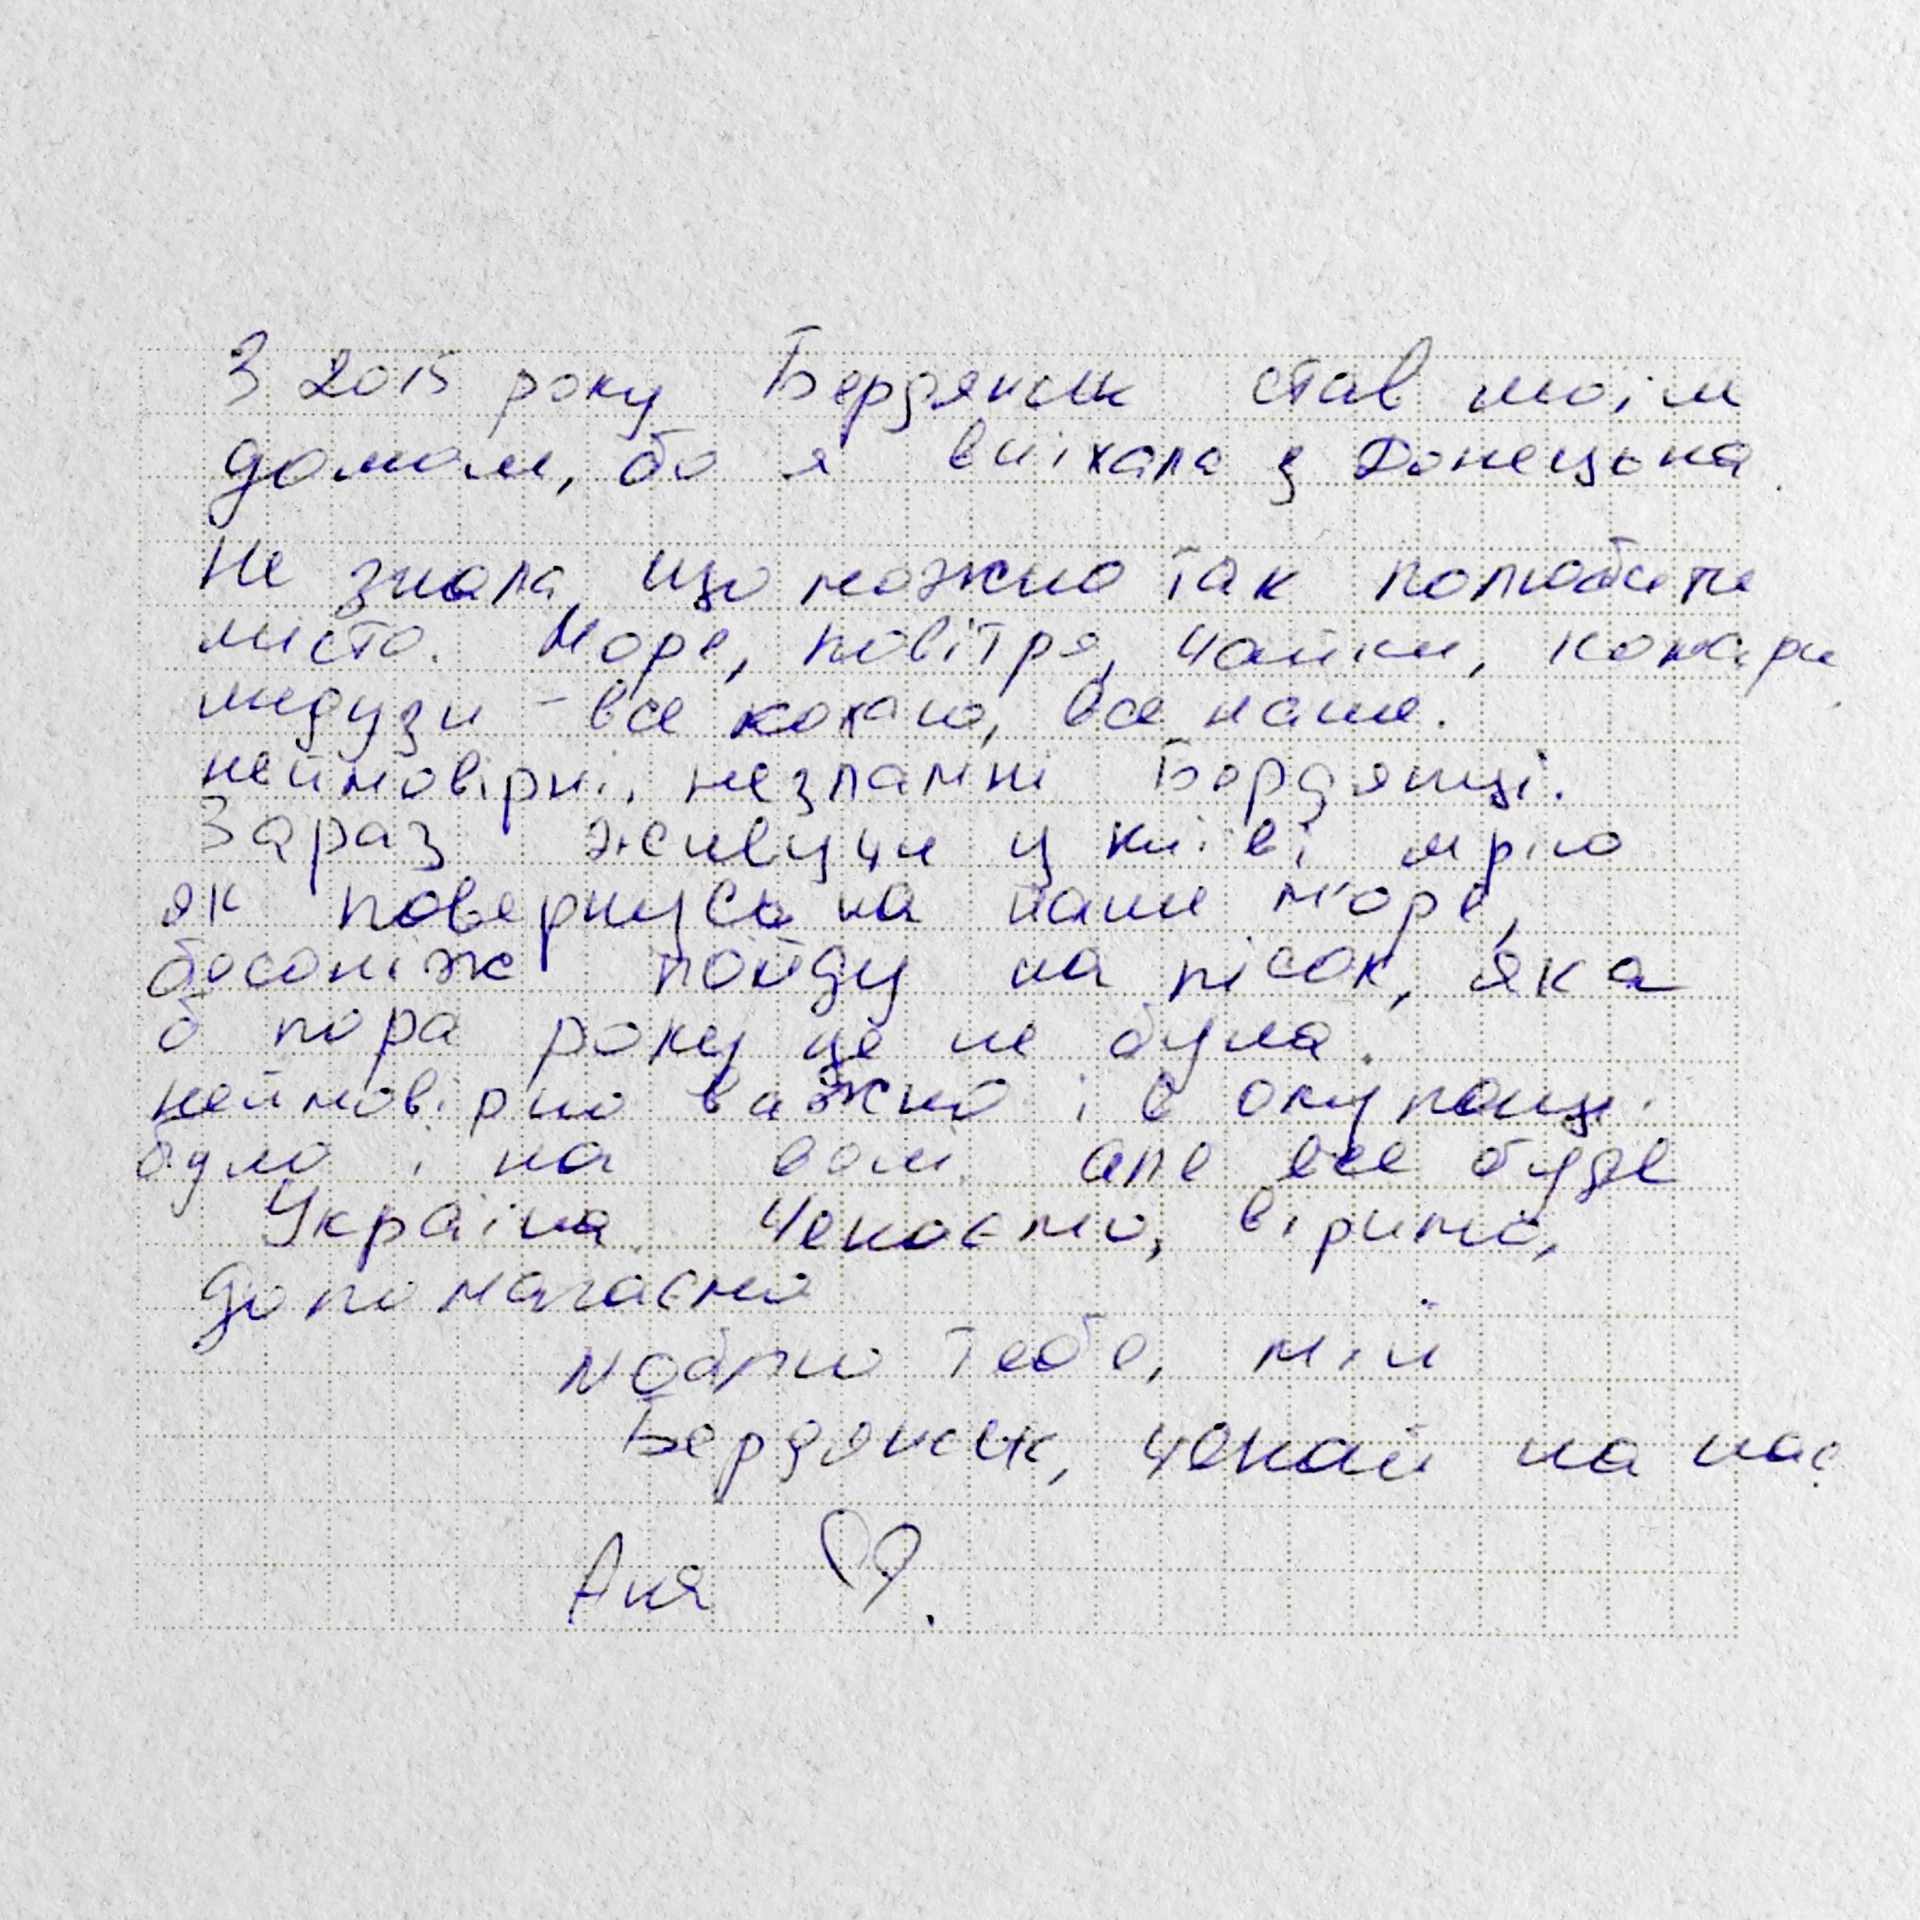 З 2015 року Бердянськ став моїм
домом, бо я виїхала з Донецька.
Не знала, що можно так полюбити
місто. Море, повітря, чайки, комари,
медузи - все кохаю, все наше.
неймовірні, незламні Бердянці.
Зараз живучи у київі мрію
як повернусь на наше море,
босоніж пойду на пісок, яка
б пора року це не була.
неймовірно важко і в окупації
було і на волі але все буде
Україна. Чекаємо, віримо,
допомагаємо
люблю тебе, мій
Бердянськ, чекай на нас.
Аня ♡.